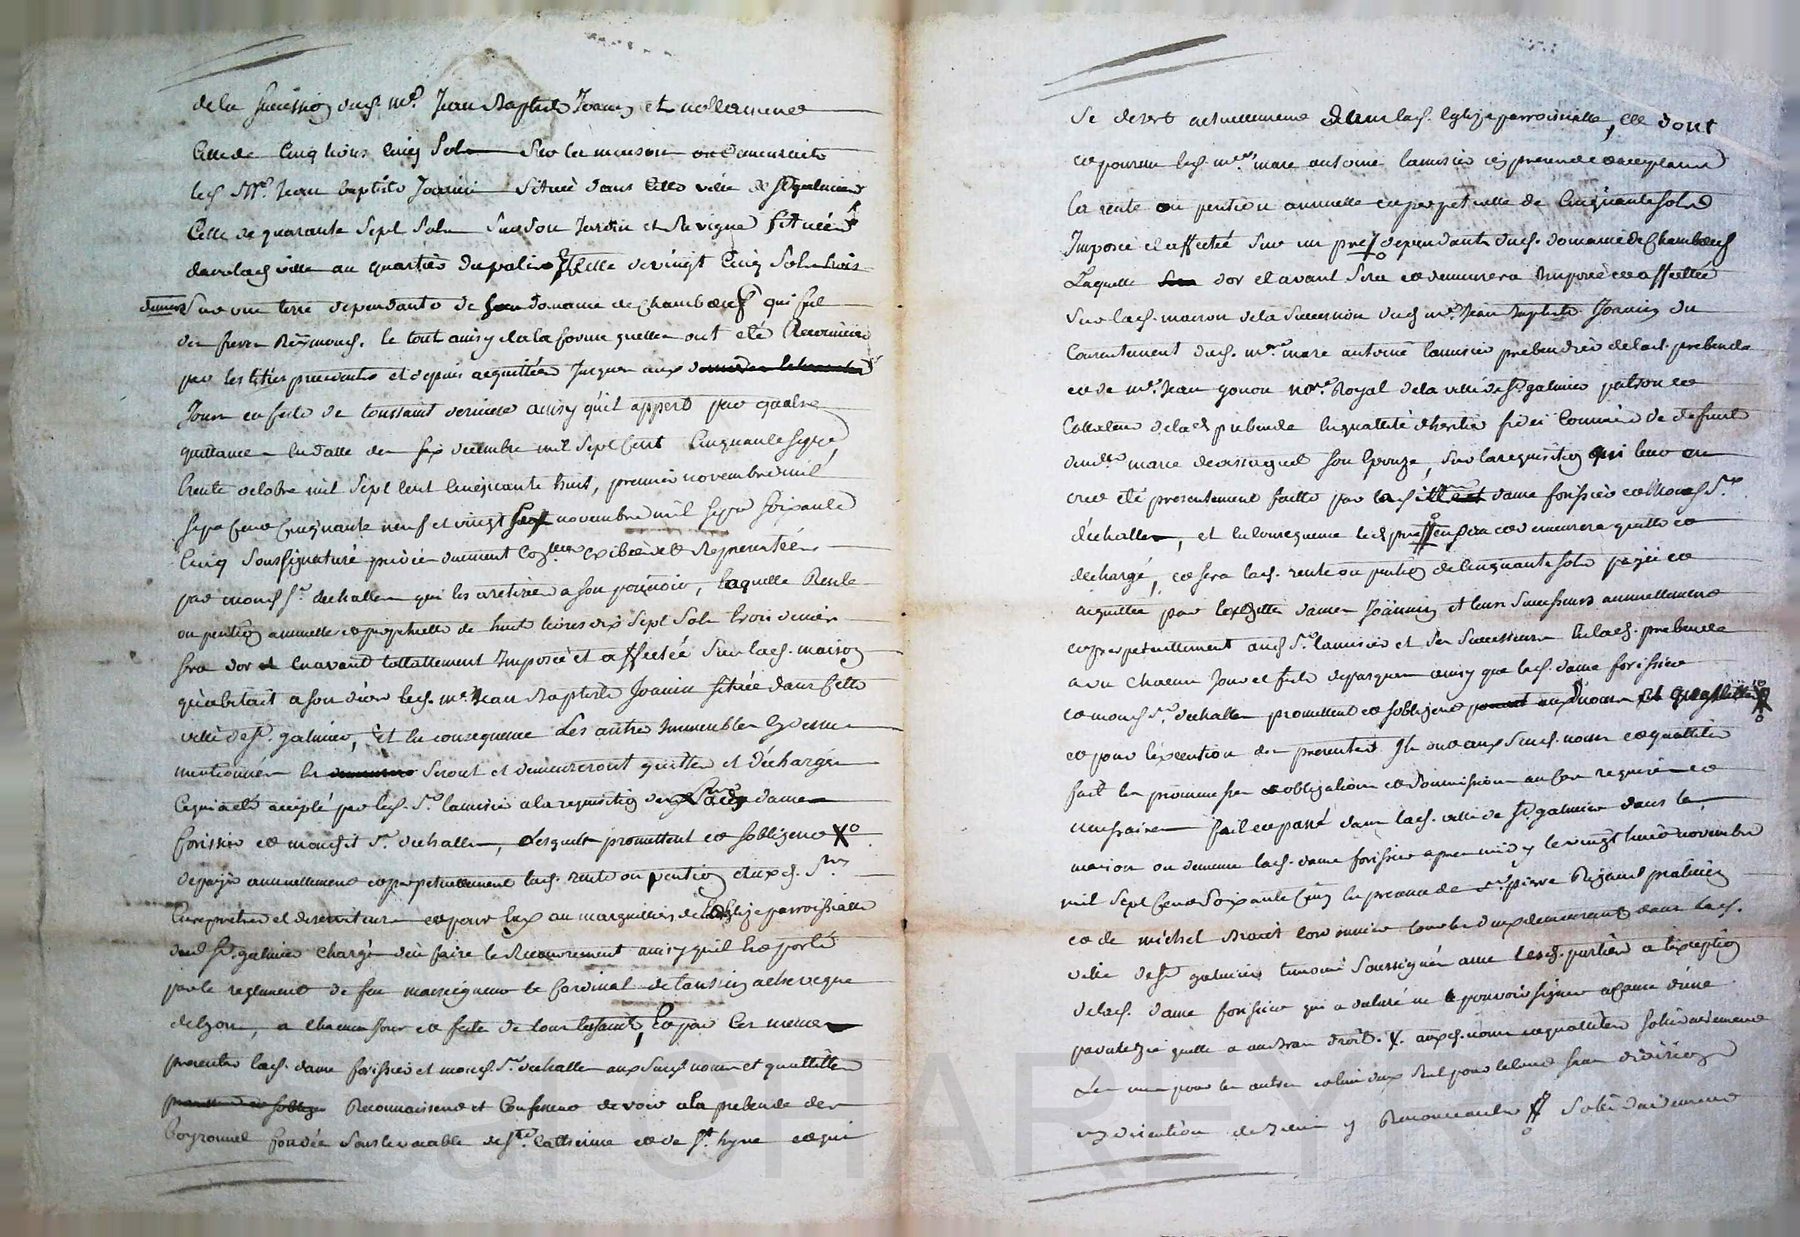 de la succession dud. mre. Jean Baptiste Joanin et nottamment
Celle de Cinq livres Cinq Sols Sur la maison ou demeuroit
led. Mre Jean baptiste Joanin Située dans cette ville de St galmier
Celle de quarante Sept Sols Sur Son Jardin et Sa vigne Situées
dans lad. ville au quartier du Celle de vingt Cinq Sols trois
deniers Sur une terre dependante de domaine de Chambœuf qui fut
de Reymond. le tout ainsy et a la forme quelles ont eté Reconnües
par les titres precedents et depuis acquittées Jusques aux
Jour et feste de toussaint derniere ainsy qu'il appert par quatre
quittances en datte des six decembre mil Sept Cent Cinquante Sept,
trente octobre mil Sept Cent Cinquante huit, premier novembre mil
Sept Cent Cinquante neuf et vingt novembre mil Sept Soixante
Cinq Soussignature privée duement exibées et Representées
par mond. Sr. duchallem qui les a retirées a Son pouvoir, laquelle Rente
ou pention annuelle et perpetuelle de huit livres dix Sept Sols trois deniers
Sera dor et En avant tottallement Imposée et affectée Sur lad. maison
qu'abitoit a Son déces led. me. Jean Baptiste Joanin Située dans Cette
ville de St. galmier, et En consequence Les autres Immeubles Cy dessus
mentionnés Seront et demeureront quittes et déchargés
Ce qui a eté accepté par led. Sr. lamisier a la requisition de dames
forissier et mondit Sr. duchallem, Lesquels promettent et Sobligent X
de payer annuellement et perpetuellement lad. rente ou pention
Curé pretres et desserviteurs et pour Eux au marguillier de Eglize parroissialle
dud. St. galmier chargé d'en faire le Recouvrement ainsy quil Est porté
par le reglement de feu monseigneur le Cardinal de tansin acheveque
de lyon, a Chacun Jour et feste de tous les saints, Et par Ces memes
presentes lad. dame forissier et mond. Sr. duchallem aux Susd. noms et quallittés
Reconnaissent et Confessent devoir a la prebende des
Coyronnel fondée Sous le vocable de Ste. Catherine et de St. hyne et qui
Se desert actuellement dans lad. Eglize parroissialle, et dont
est pourvu led. mre. marc antoine lamisier icy present et acceptant
la rente ou pention annuelle et perpetuelle de Cinquante Sols
Imposée et affectée Sur un pré dependant dud. domaine de Chambœuf
Laquelle dor et avant Sera et demeurera Imposée et affectée
Sur lad. maison de la Succession dud. mre. Jean Baptiste Joanin du
Consentement dud. mre. marc antoine lamisier prebendier de lad. prebende
et de me. Jean gonon nore. Royal de la ville de St. galmier patron et
Collateur de lad. prebende En quallité d'heritier fidei Commis de defunte
marie Son Epouze, Sur la requisition qui leur en
a eté presentement faitte par dame forissier et Mond. Sr.
duchallem, et En Consequence led. pré Sera et demeurera quitte et
déchargé, et Sera lad. rente ou pention de Cinquante Sols payée et
acquittée par dames Joannin et leurs Successeurs annuellement
et perpetuellement aud. Sr. lamisier et Ses Successeurs En lad. prebende
a un chacun Jour et feste de pasques ainsy que lad. dame forissier
et mond. Sr. duchallem promettent et Sobligent
et pour l'execution des presentes Ils ont aux Susd. noms et quallités
fait les promesses et obligations et Soumissions au Cas requises et
necessaires fait et passé dans lad. ville de St. galmier dans la
maison ou demeure lad. dame forissier apres midy le vingt novembre
mil Sept Cent Soixante Cinq En presence de Sr. pierre praticien
et de michel Cordonnier tous les deux demeurants dans lad.
ville de St galmier temoins Soussignés avec Lesd. parties a l'exception
de lad. dame forissier qui a declaré ne pouvoir signer a Cause d'une
paralizie quelle a au bras droit. X. auxd. noms et quallités Solidairement
L'un pour les autres et lun deux Seul pour le tout Sans division
ny discution de biens y Renonceants Solidairement